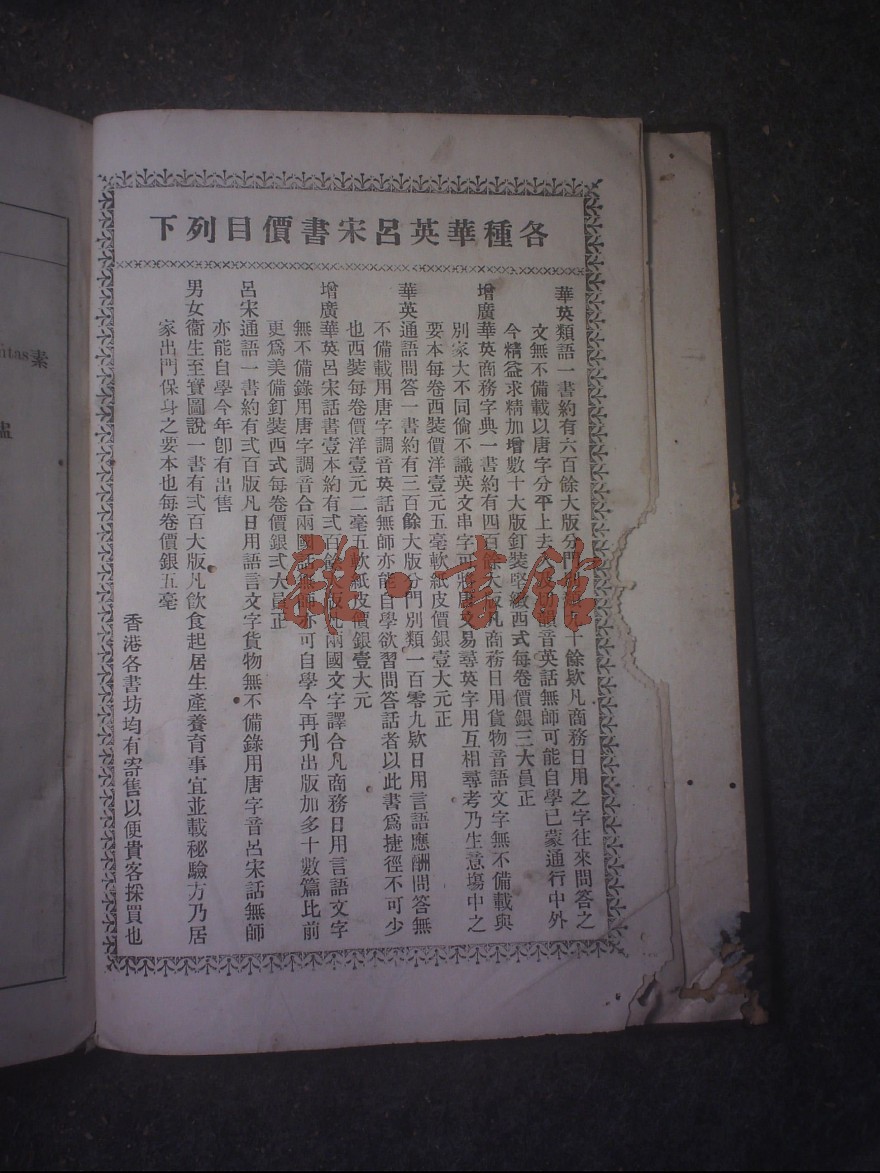 各種華英呂宋書價目列下
華英類語一書約有六百餘大版分門十餘欵凡商務日用之字往來問答之
文無不備載以唐字分平上去音英話無師可能自學已蒙通行中外
今精益求精加增數十大版釘裝堅緻西式每卷價銀三大員正
增廣華英商務字典一書約有四百餘大版凡商務日用貨物音語文字無不備載與
別家大不同倘不識英文串字可將唐文易尋英字用互相尋考乃生意塲中之
要本每卷西裝價洋壹元五毫軟紙皮價銀壹大元正
華英通語問答一書約有三百餘大版分門別類一百零九欵日用言語應酬問答無
不備載用唐字調音英話無師亦能自學欲習問答話者以此書爲捷徑不可少
也西裝每卷價洋壹元二毫五軟紙皮價銀壹大元
增廣華英呂宋話書壹本約有弍百餘大版凡兩國文字譯合凡商務日用言語文字
無不備錄用唐字調音合兩國話無師亦可自學今再刊出版加多十數篇比前
更爲美備釘裝西式每卷價銀弍大員正
呂宋通語一書約有弍百版凡日用語言文字貨物無不備錄用唐字音呂宋話無師
亦能自學今年卽有出售
男女衞生至寶圖說一書有弍百大版凡飲食起居生產養育事宜並載秘驗方乃居
家出門保身之要本也每卷價銀五毫
香港各書坊均有寄售以便貴客採買也
素
雜·書館